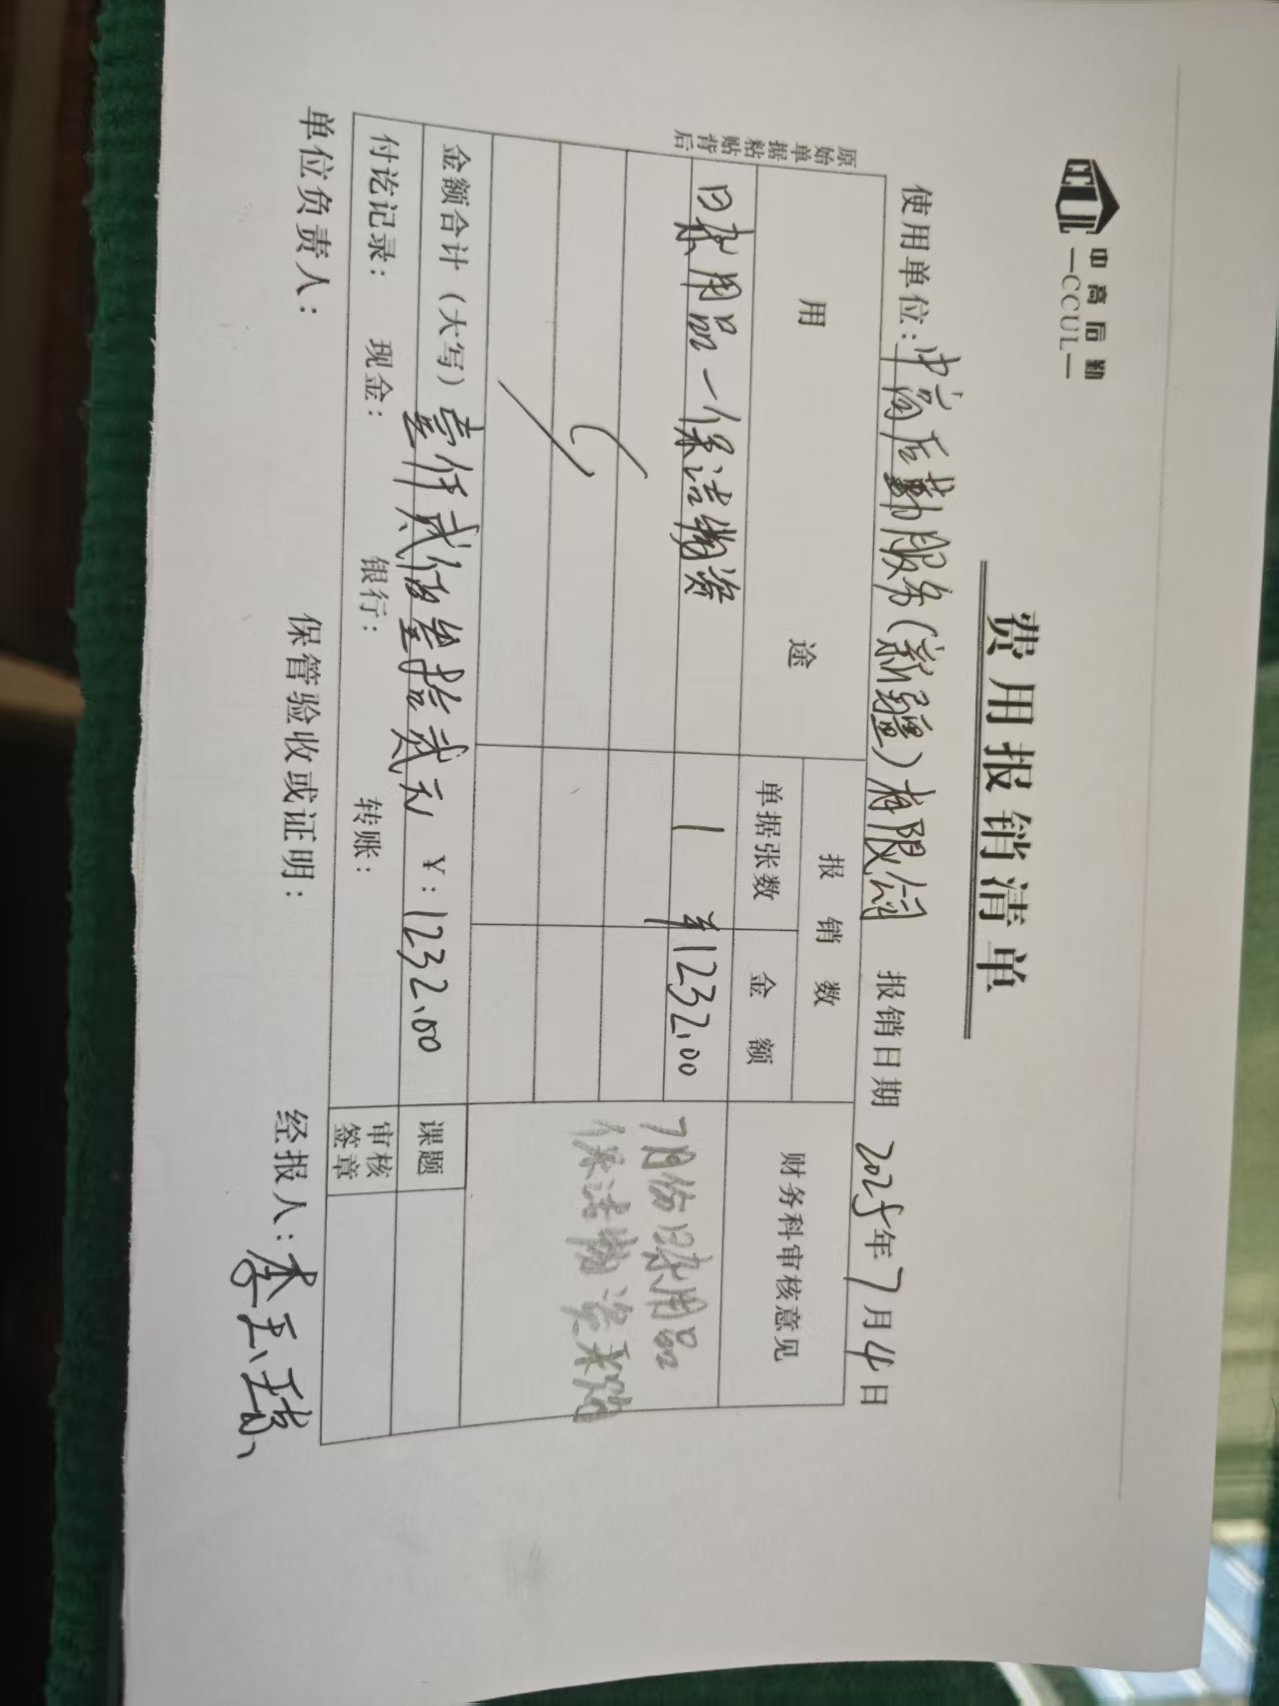 CCUL 中高后勤
—CCUL—
费用报销清单
使用单位:中高后勤服务(新疆)有限公司 报销日期 2025年7月4日
原始单据粘贴背后
用 途 报 销 数 财务科审核意见
单据张数 金 额
日杂用品—保洁物资 1 ¥1232.00
7月份日杂用品
保洁物资采购
金额合计(大写)壹仟贰佰叁拾贰元 ¥:1232.00 课题
付讫记录: 现金: 银行: 转账: 审核签章
单位负责人: 保管验收或证明: 经报人:李玉